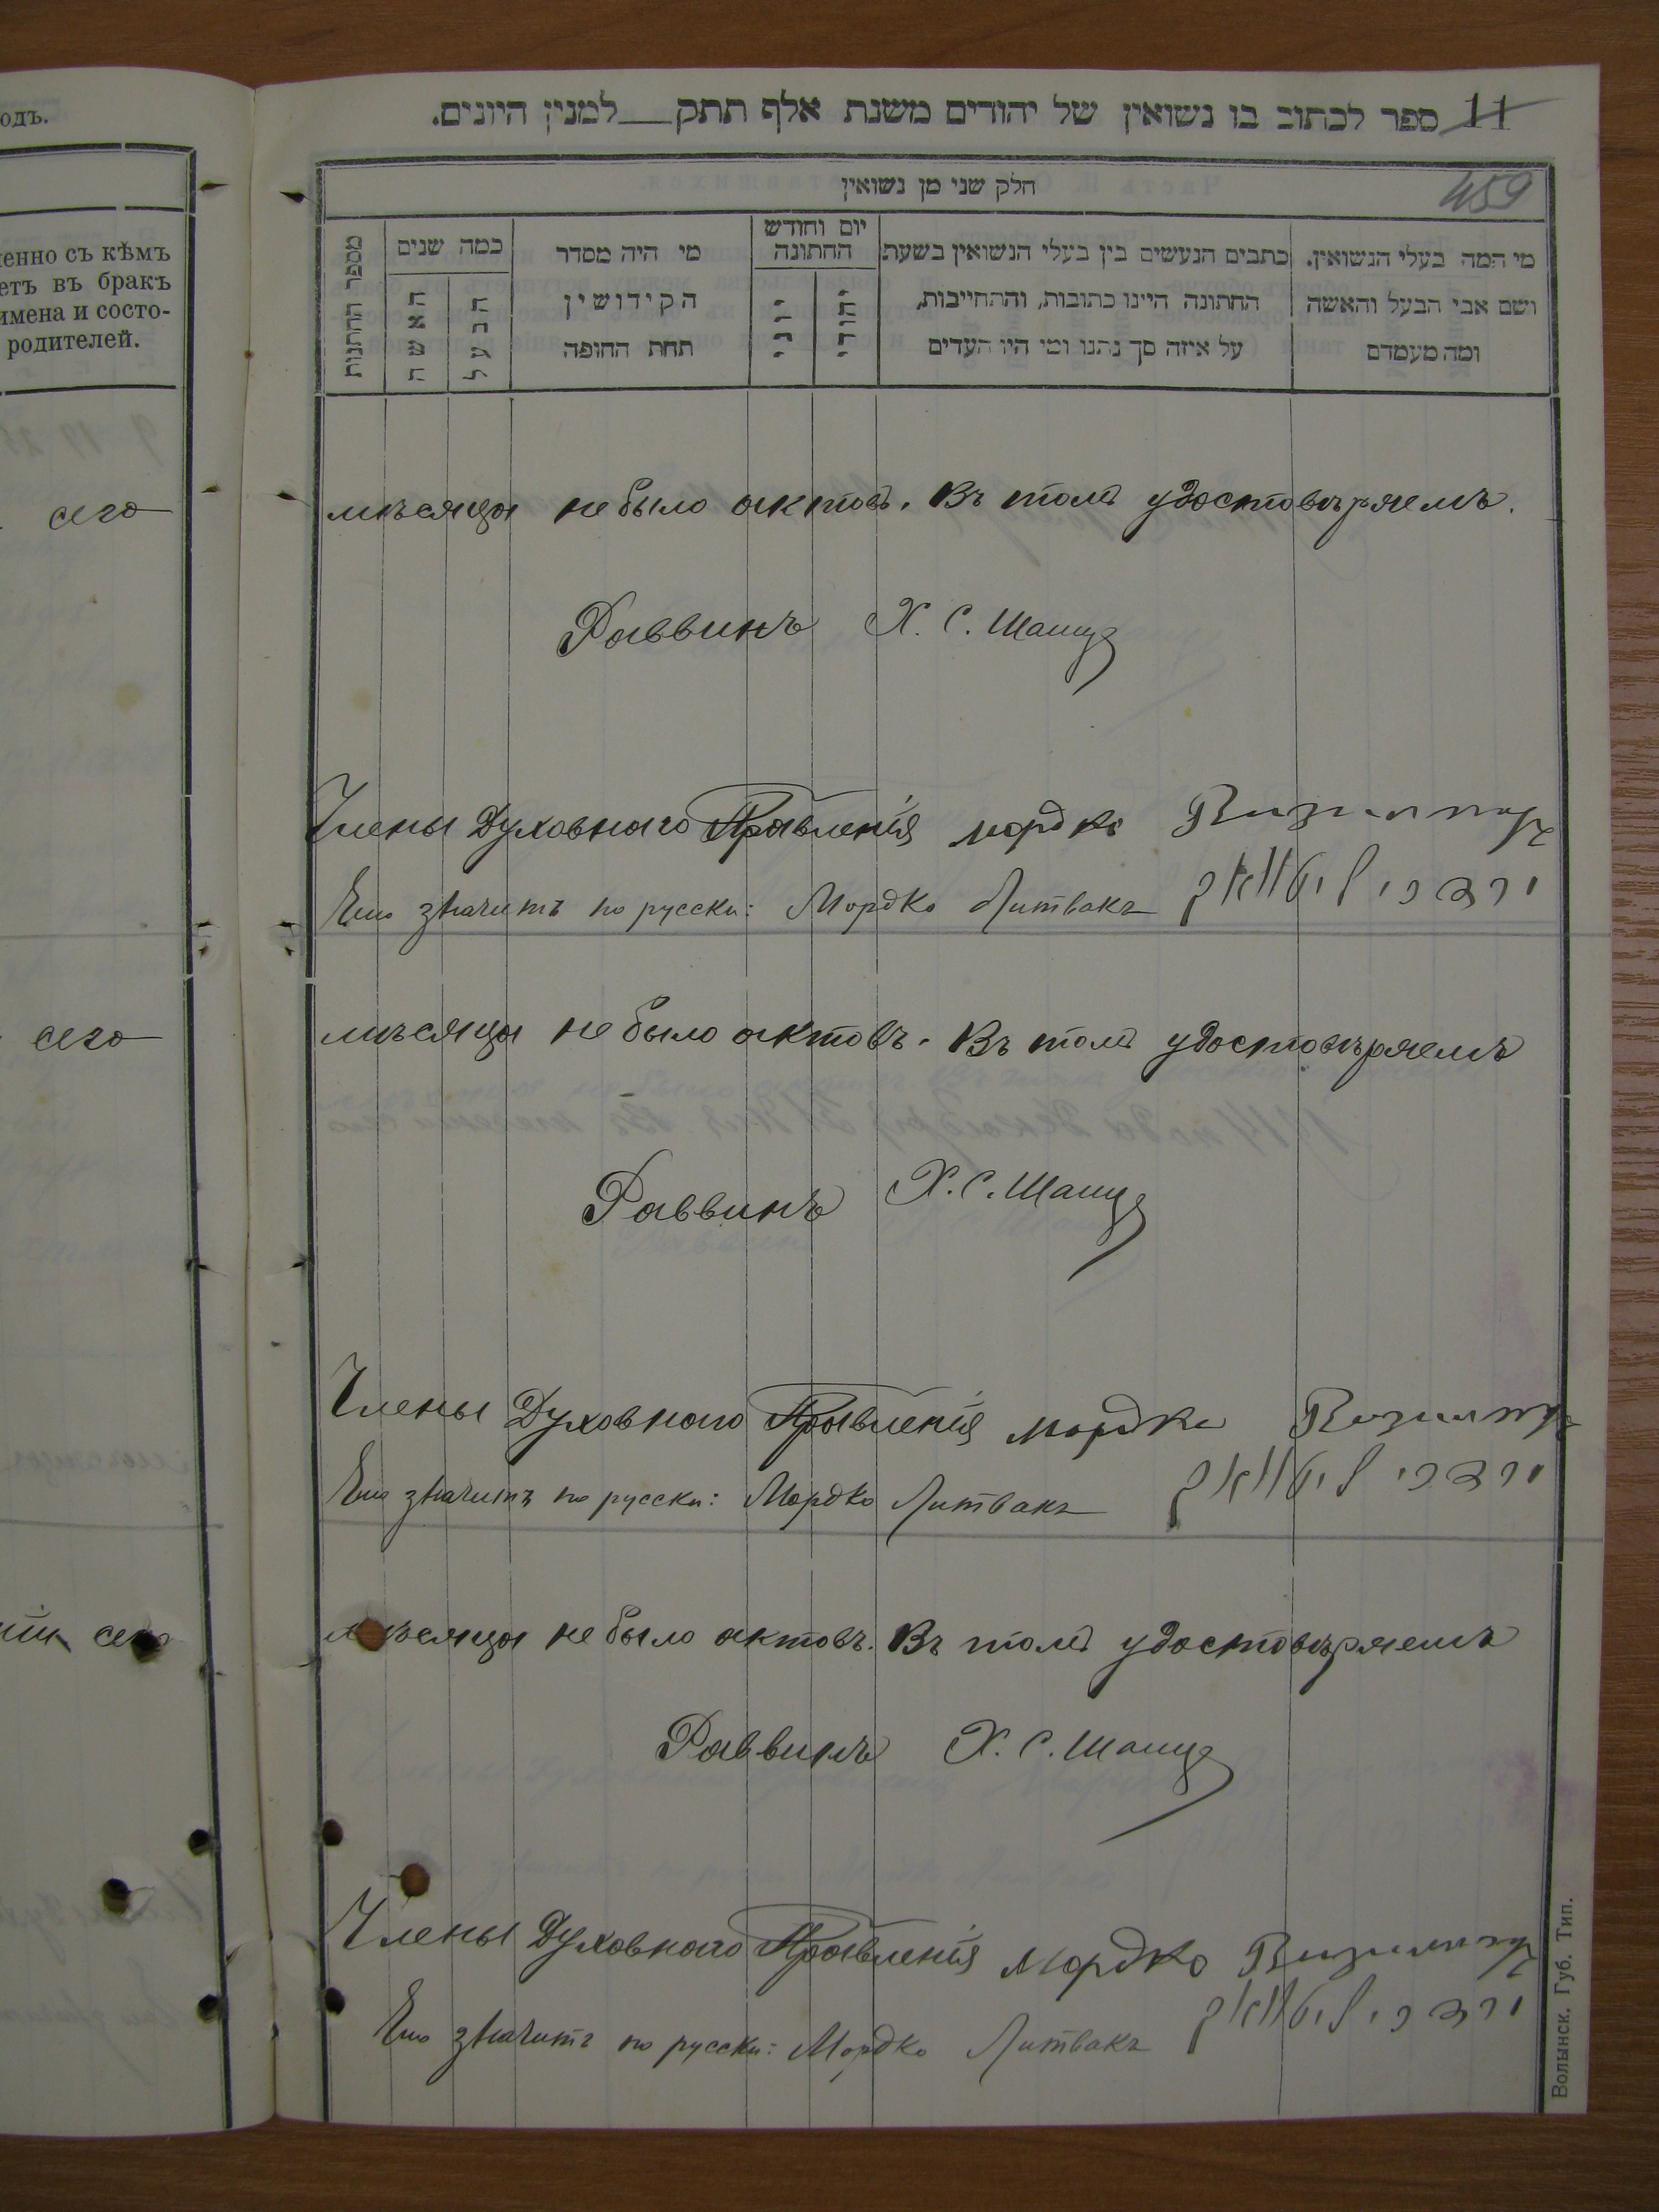 одъ.
енно съ кѣмъ
етъ въ бракъ
имена и состо-
родителей.
сего
сего
сего
11 ספר לכתוב בו נשואין של יהודים משנת אלף תתק למנין היונים.
459
חלק שני מן נשואין
מי המה בעלי הנשואין.
ושם אבי הבעל והאשה
ומה מעמדם
כתבים הנעשים בין בעלי הנשואין בשעת
החתונה היינו כתובות, והתחייבות,
על איזה סך נתנו ומי היו העדים
יום וחודש
החתונה
יהודי
יוני
מי היה מסדר
הקידושין
תחת החופה
כמה שנים
הבעל
האשה
מספר החתנות
мѣсяца не было актовъ. Въ томъ удостовѣряемъ.
Раввинъ Х. С. Шапиро
Члены Духовнаго Правленія мордко
Еto значитъ по русски: Мордко Литвакъ
מרדכי ליטוואק
мѣсяца не было актовъ. Въ томъ удостовѣряемъ
Раввинъ Х. С. Шапиро
Члены Духовнаго Правленія мордко
значитъ по русски: Мордко Литвакъ
מרדכי ליטוואק
мѣсяца не было актовъ. Въ томъ удостовѣряемъ
Раввинъ Х. С. Шапиро
Члены Духовнаго Правленія Мордко
значитъ по русски: Мордко Литвакъ
מרדכי ליטוואק
Волынск. Губ. Тип.